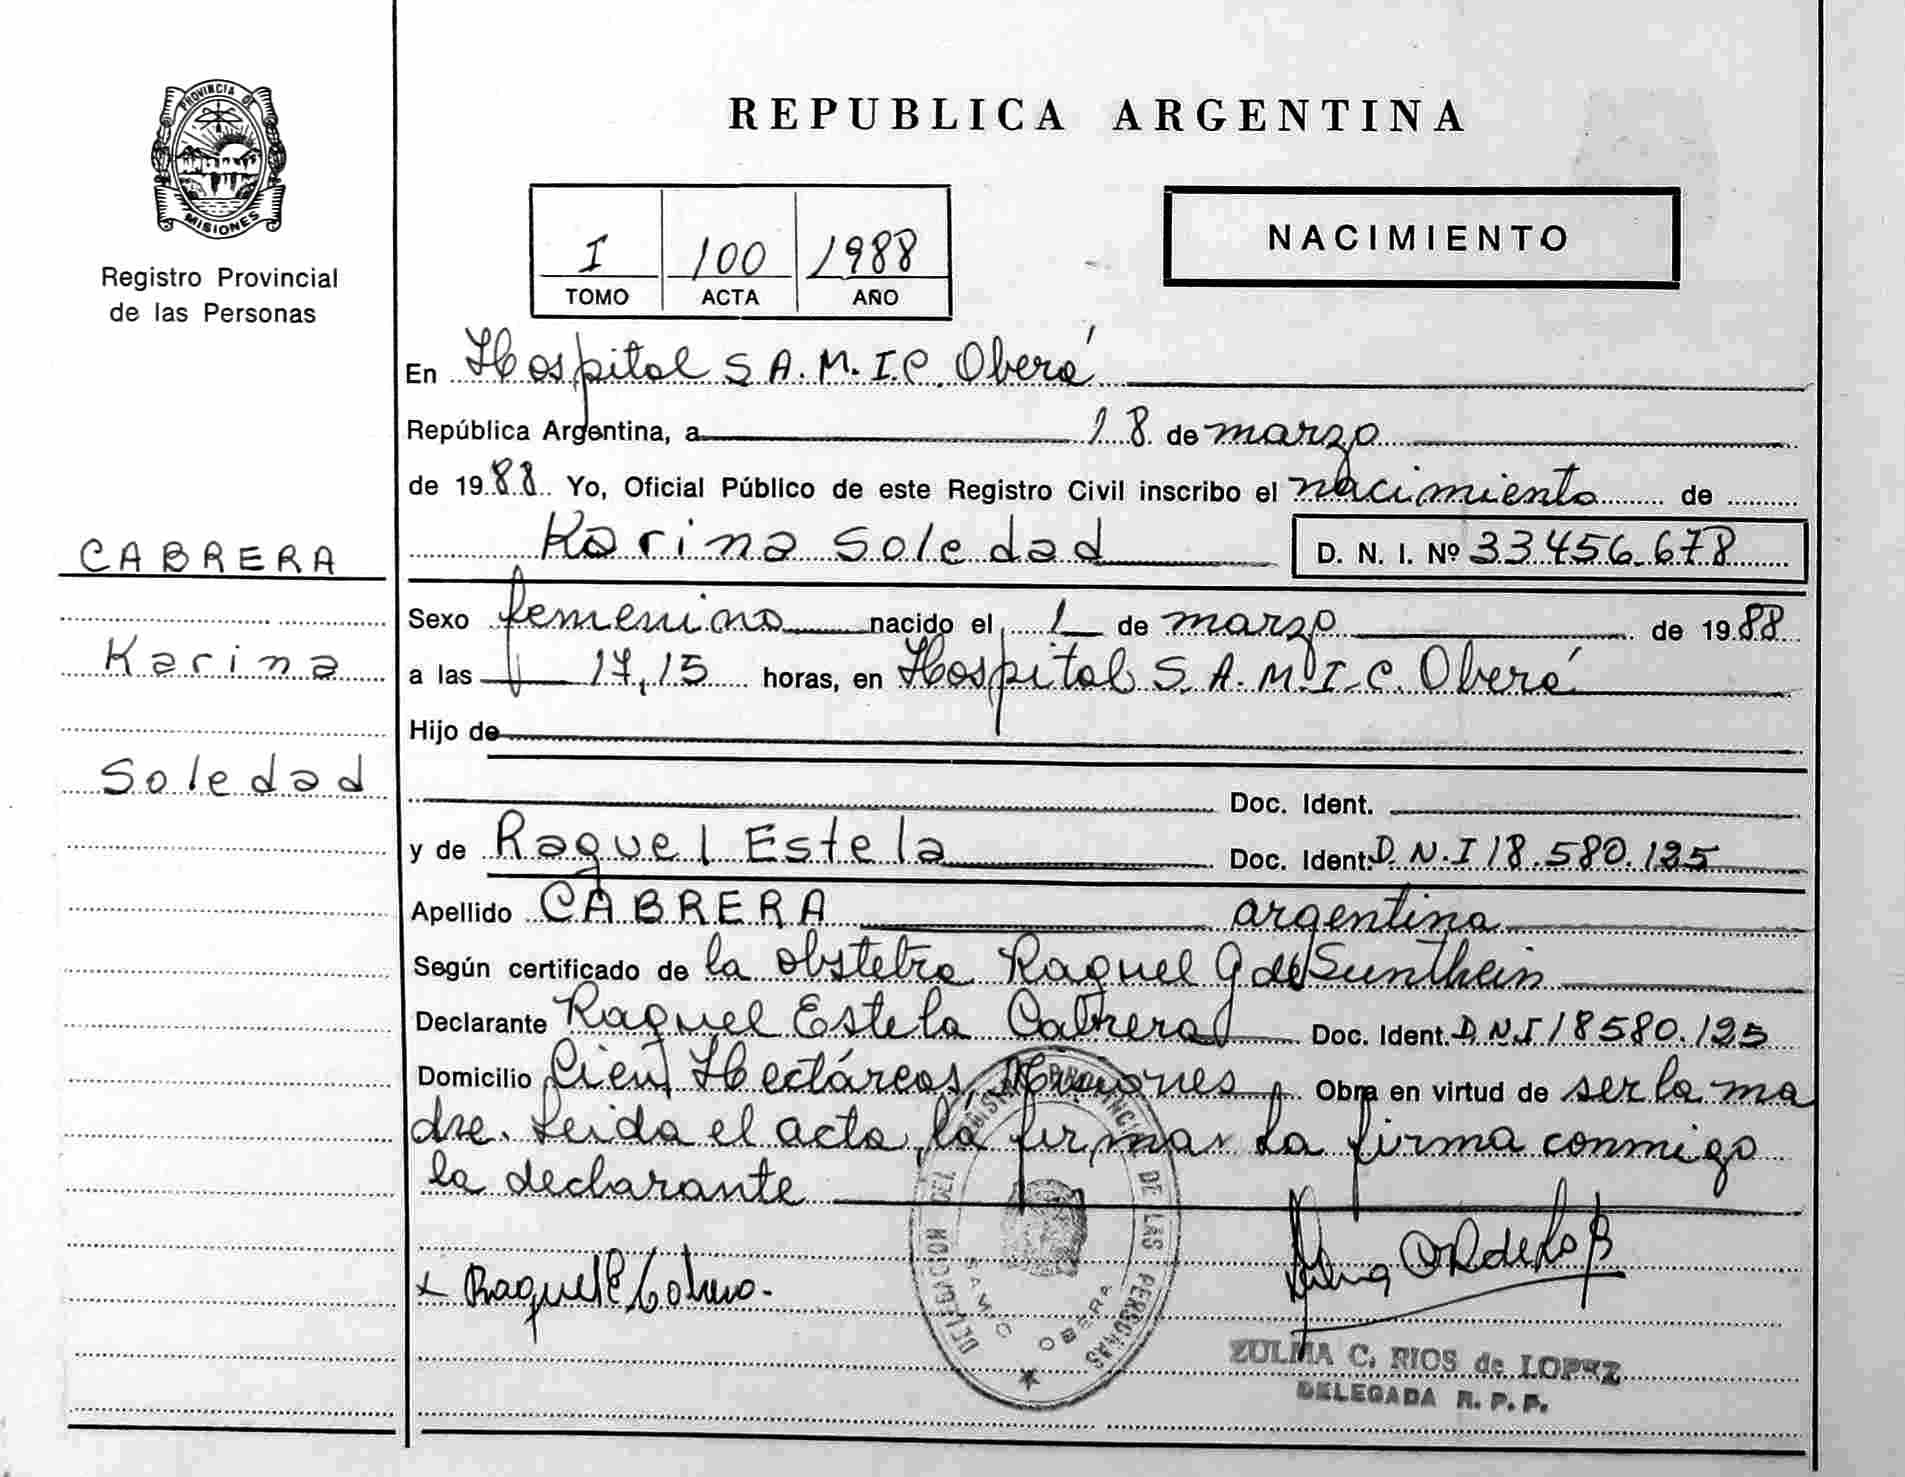 PROVINCIA DE
MISIONES
Registro Provincial
de las Personas
CABRERA
Karina
Soledad
REPUBLICA ARGENTINA
I 100 1988
TOMO ACTA AÑO
NACIMIENTO
En Hospital S.A.M.I.C. Oberá
República Argentina, a 18 de marzo
de 1988 Yo, Oficial Público de este Registro Civil inscribo el nacimiento de
Karina Soledad D. N. I. Nº 33.456.678
Sexo femenino nacido el 1 de marzo de 1988
a las 17,15 horas, en Hospital S.A.M.I.C. Oberá
Hijo de
Doc. Ident.
y de Raquel Estela Doc. Ident: D.N.I 18.580.125
Apellido CABRERA argentina
Según certificado de la obstetra Raquel G de Sunthein
Declarante Raquel Estela Cabrera Doc. Ident. D.N.I 18580.125
Domicilio Cien Hectáreas, Misiones Obra en virtud de ser la ma
dre. Leida el acta, la firma la firma conmigo
la declarante
DELEGACION DEL REGISTRO PROVINCIAL DE LAS PERSONAS
SAMIC OBERA
x Raquel E Cabrera.
ZULMA C. RIOS de LOPEZ
DELEGADA R. P. P.